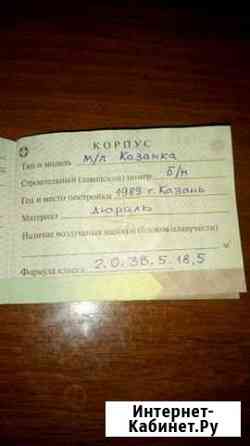 КОРПУС
Тип и модель м/л Казанка
Строительный (заводской) номер б/н
Год и место постройки 1989 г. Казань
Материал дюраль
Наличие воздушных ящиков (блоков плавучести)
м³
Формула класса 2, 0, 3В, 5, 18, 5
Интернет-
Кабинет.Ру